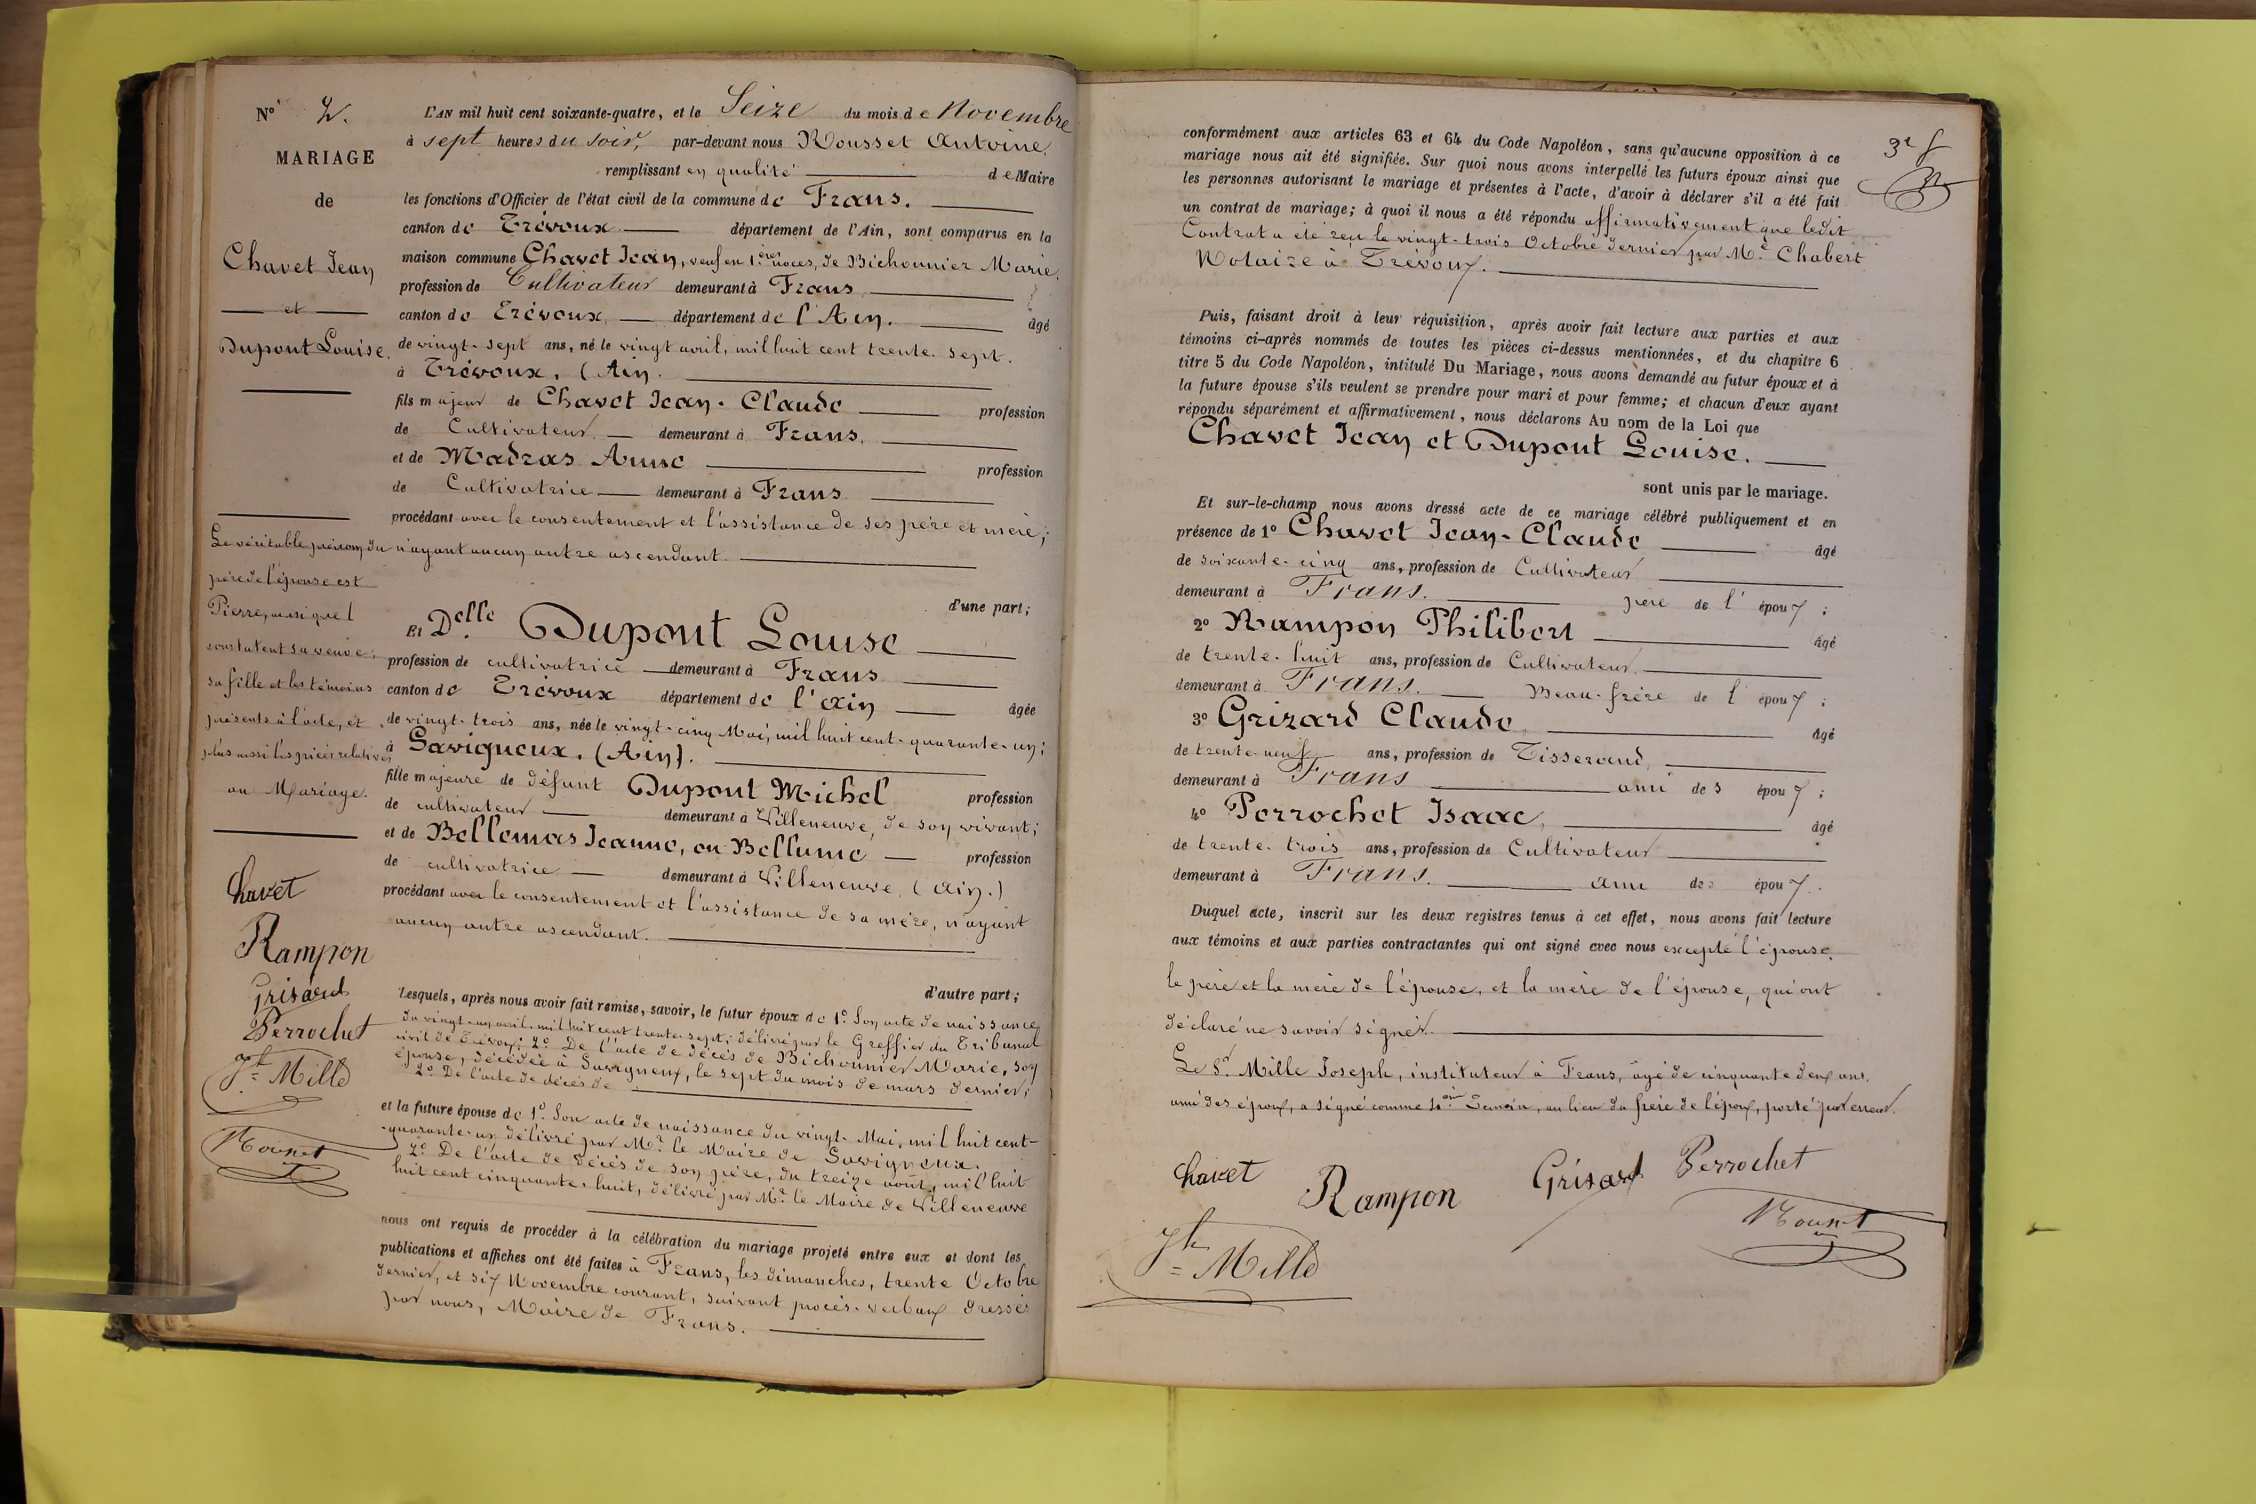 N° 2.
MARIAGE
de
Chavet Jean
et
Dupont Louise.
L'AN mil huit cent soixante-quatre, et le Seize du mois de Novembre
à sept heures du soir, par-devant nous Rousset Antoine.
remplissant en qualité de Maire
les fonctions d'Officier de l'état civil de la commune de Frans.
canton de Trévoux département de l'Ain, sont comparus en la
maison commune Chavet Jean, veuf en 1ères noces, de Bichonnier Marie.
profession de Cultivateur demeurant à Frans
canton de Trévoux département de l'Ain. âgé
de vingt-sept ans, né le vingt avril, mil huit cent trente-sept.
à Trévoux, (Ain.
fils majeur de Chavet Jean-Claude profession
de Cultivateur demeurant à Frans.
et de Madras Anne profession
de Cultivatrice demeurant à Frans
procédant avec le consentement et l'assistance de ses père et mère;
n'ayant aucun autre ascendant.
d'une part;
Et Delle Dupont Louise
profession de cultivatrice demeurant à Frans
canton de Trévoux département de l'Ain âgée
de vingt-trois ans, née le vingt-cinq Mai, mil huit cent-quarante-un;
à Savigneux. (Ain).
fille majeure de défunt Dupont Michel profession
de cultivateur demeurant à Villeneuve, de son vivant;
et de Bellemas Jeanne, ou Bellume profession
de cultivatrice demeurant à Villeneuve, (Ain.)
procédant avec le consentement et l'assistance de sa mère, n'ayant
aucun autre ascendant.
d'autre part;
Lesquels, après nous avoir fait remise, savoir, le futur époux de 1°. Son acte de naissance
du vingt-un avril-mil huit cent trente-sept; délivré par le Greffier du Tribunal
civil de Trévoux; 2°. De l'acte de décès de Bichonnier Marie, son
épouse, décédée à Savigneux, le sept du mois de mars dernier;
2°. De l'acte de décès de
et la future épouse de 1°. Son acte de naissance du vingt-Mai, mil huit cent-
-quarante-un délivré par Mr. le Maire de Savigneux.
2°. De l'acte de décès de son père, du treize août, mil huit
huit cent cinquante-huit, délivré par Mr. le Maire de Villeneuve
nous ont requis de procéder à la célébration du mariage projeté entre eux et dont les
publications et affiches ont été faites à Frans, les dimanches, trente Octobre
dernier, et six Novembre courant, suivant procès-verbaux dressés
par nous, Maire de Frans.
Le véritable prénom du
père de l'épouse est
Pierre, ainsi que l
constatent sa veuve,
sa fille et les témoins
présents à l'acte, et
plus aussi les pièces relatives
au Mariage.
Chavet
Rampon
Grisard
Perrochet
Jh Mille
Rousset
3e f
conformément aux articles 63 et 64 du Code Napoléon, sans qu'aucune opposition à ce
mariage nous ait été signifiée. Sur quoi nous avons interpellé les futurs époux ainsi que
les personnes autorisant le mariage et présentes à l'acte, d'avoir à déclarer s'il a été fait
un contrat de mariage; à quoi il nous a été répondu affirmativement que ledit
Contrat a été reçu le vingt-trois Octobre dernier par Me. Chabert
Notaire à Trévoux.
Puis, faisant droit à leur réquisition, après avoir fait lecture aux parties et aux
témoins ci-après nommés de toutes les pièces ci-dessus mentionnées, et du chapitre 6
titre 5 du Code Napoléon, intitulé Du Mariage, nous avons demandé au futur époux et à
la future épouse s'ils veulent se prendre pour mari et pour femme; et chacun d'eux ayant
répondu séparément et affirmativement, nous déclarons Au nom de la Loi que
Chavet Jean et Dupont Louise.
sont unis par le mariage.
Et sur-le-champ nous avons dressé acte de ce mariage célébré publiquement et en
présence de 1° Chavet Jean-Claude âgé
de soixante-cinq ans, profession de Cultivateur
demeurant à Frans. père de l' époux;
2° Rampon Philibert âgé
de trente-huit ans, profession de Cultivateur
demeurant à Frans. Beau-frère de l' époux;
3° Grizard Claude, âgé
de trente-neuf ans, profession de Tisserand,
demeurant à Frans ami des époux;
4° Perrochet Isaac, âgé
de trente-trois ans, profession de Cultivateur
demeurant à Frans. ami des époux.
Duquel acte, inscrit sur les deux registres tenus à cet effet, nous avons fait lecture
aux témoins et aux parties contractantes qui ont signé avec nous excepté l'épouse,
le père et la mère de l'épouse, et la mère de l'épouse, qui ont
déclaré ne savoir signer.
Le Sr. Mille Joseph, instituteur à Frans, âgé de cinquante deux ans,
ami des époux, a signé comme 4ème Témoin, au lieu du frère de l'époux, porté par erreur.
Chavet Rampon Grisard Perrochet
Jh Mille Rousset